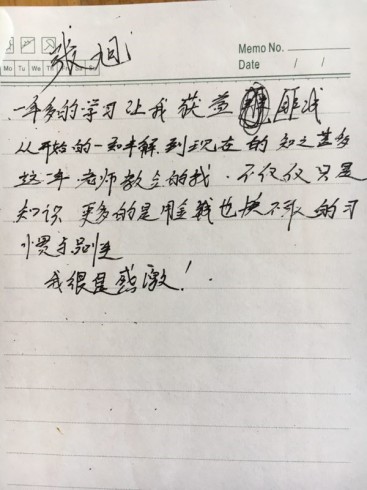 张旭
Memo No.
Mo Tu We Th Fr Sa Su
Date / /
一年多的学习让我获益匪浅
从开始的一知半解到现在的知之甚多
这一年老师教会的我.不仅仅只是
知识 更多的是用金钱也换不取的习
惯与
我很是感激!